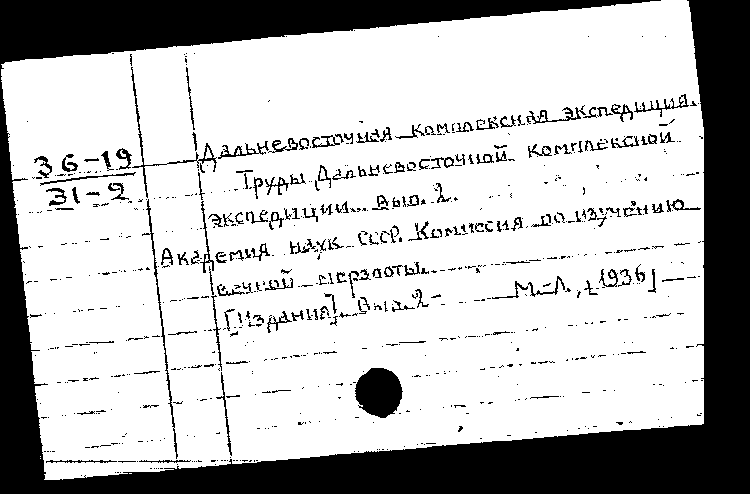 36-19
31-2
Дальневосточная комплексная экспедиция.
Труды Дальневосточной Комплексной
экспедиции. Вып. 2.
Академия наук СССР. Комиссия по изучению
вечной мерзлоты.
[Издания]. Вып. 2- М.-Л., [1936]